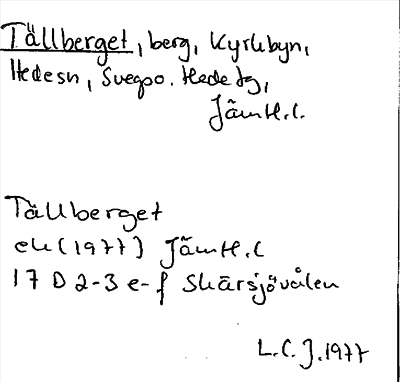 Tällberget, berg, Kyrkbyn,
Hedesn, Svegpo. Hede tg,
Jämtl.l.
Tällberget
ek (1977) Jämtl.l
17 D 2-3 e-f Skärsjövålen
L.C.J. 1977